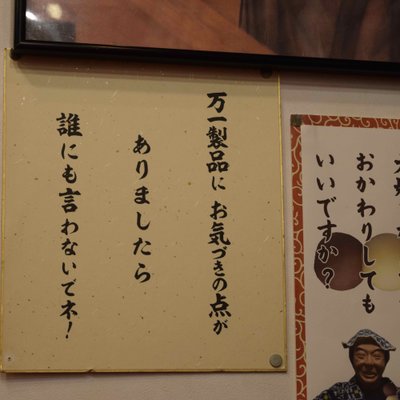 万一製品に お気づきの点が
ありましたら
誰にも言わないでネ!
おかわりしても
いいですか?